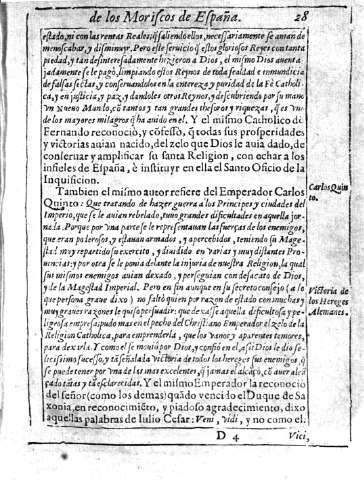 de los Moriscos de España. 28
estado, ni con las rentas Reales: q̃ saliendo ellos, necessariamente se auian de
menoscabar, y disminuyr. Pero este seruicio q̃ estos gloriosos Reyes con tanta
piedad, y tan desinteresadamente hizieron a Dios, el mismo Dios auenta
jadamente se le pagò, limpiando estos Reynos de toda fealtad e inmundicia
de falsas sectas, y conseruandolos en la entereza y puridad de la Fè Catholi-
ca, y en justicia, y paz, y dandoles otros Reynos, y descubriendo por su mano
vn Nueuo Mundo, cõ tantos y tan grandes thesoros y riquezas, q̃ es vno
de los mayores milagros q̃ ha auido en el. Y el mismo Catholico de
Fernando reconociò, y cõfessò, q̃ todas sus prosperidades
y victorias auian nacido, del zelo que Dios le auia dado, de
conseruar y amplificar su santa Religion, con echar a los
infieles de España, è instituyr en ella el Santo Oficio de la
Inquisicion.
Tambien el mismo autor refiere del Emperador Carlos
Quinto: Que tratando de hazer guerra a los Principes y ciudades del
Imperio, que se le auian rebelado, tuuo grandes dificultades en aquella jor-
nada. Porque por vna parte se le representauan las fuerças de los enemigos,
que eran poderosos, y estauan armados, y apercebidos, teniendo su Mage-
stad muy repartido su exercito, y diuidido en varias y muy distantes Pro-
uincias: y por otra se le ponia delante la injuria de nuestra Religion, la qual
sus mismos enemigos auian dexado, y perseguian con desacato de Dios,
y de la Magestad Imperial. Pero en fin aunque en su secreto consejo (a lo
que persona graue dixo) no faltò quien por razon de estado con muchas y
muy graues razones le quiso persuadir: que dexasse aquella dificultosa y pe-
ligrosa empresa, pudo mas en el pecho del Christiano Emperador el zelo de la
Religion Catholica, para emprenderla, que los vanos y aparentes temores,
para dexarla. Y como el se mouiò por Dios, y confiò en el, assi Dios le dio fe-
licissimo sucesso, y tã señalada victoria de todos los hereges sus enemigos, q̃
se puede tener por vna de las mas excelentes, q̃ jamas el alcãçò, cõ auer alcã
çado tãtas y tã esclarecidas. Y el mismo Emperador la reconocio
del señor (como los demas) quãdo venciò el Duque de Sa
xonia, en reconocimiẽto, y piadoso agradecimiento, dixo
aquellas palabras de Iulio Cesar: Veni, vidi, y no como el.
D 4 Vici,
Carlos Quin
to.
Victoria de
los Hereges
Alemanes.